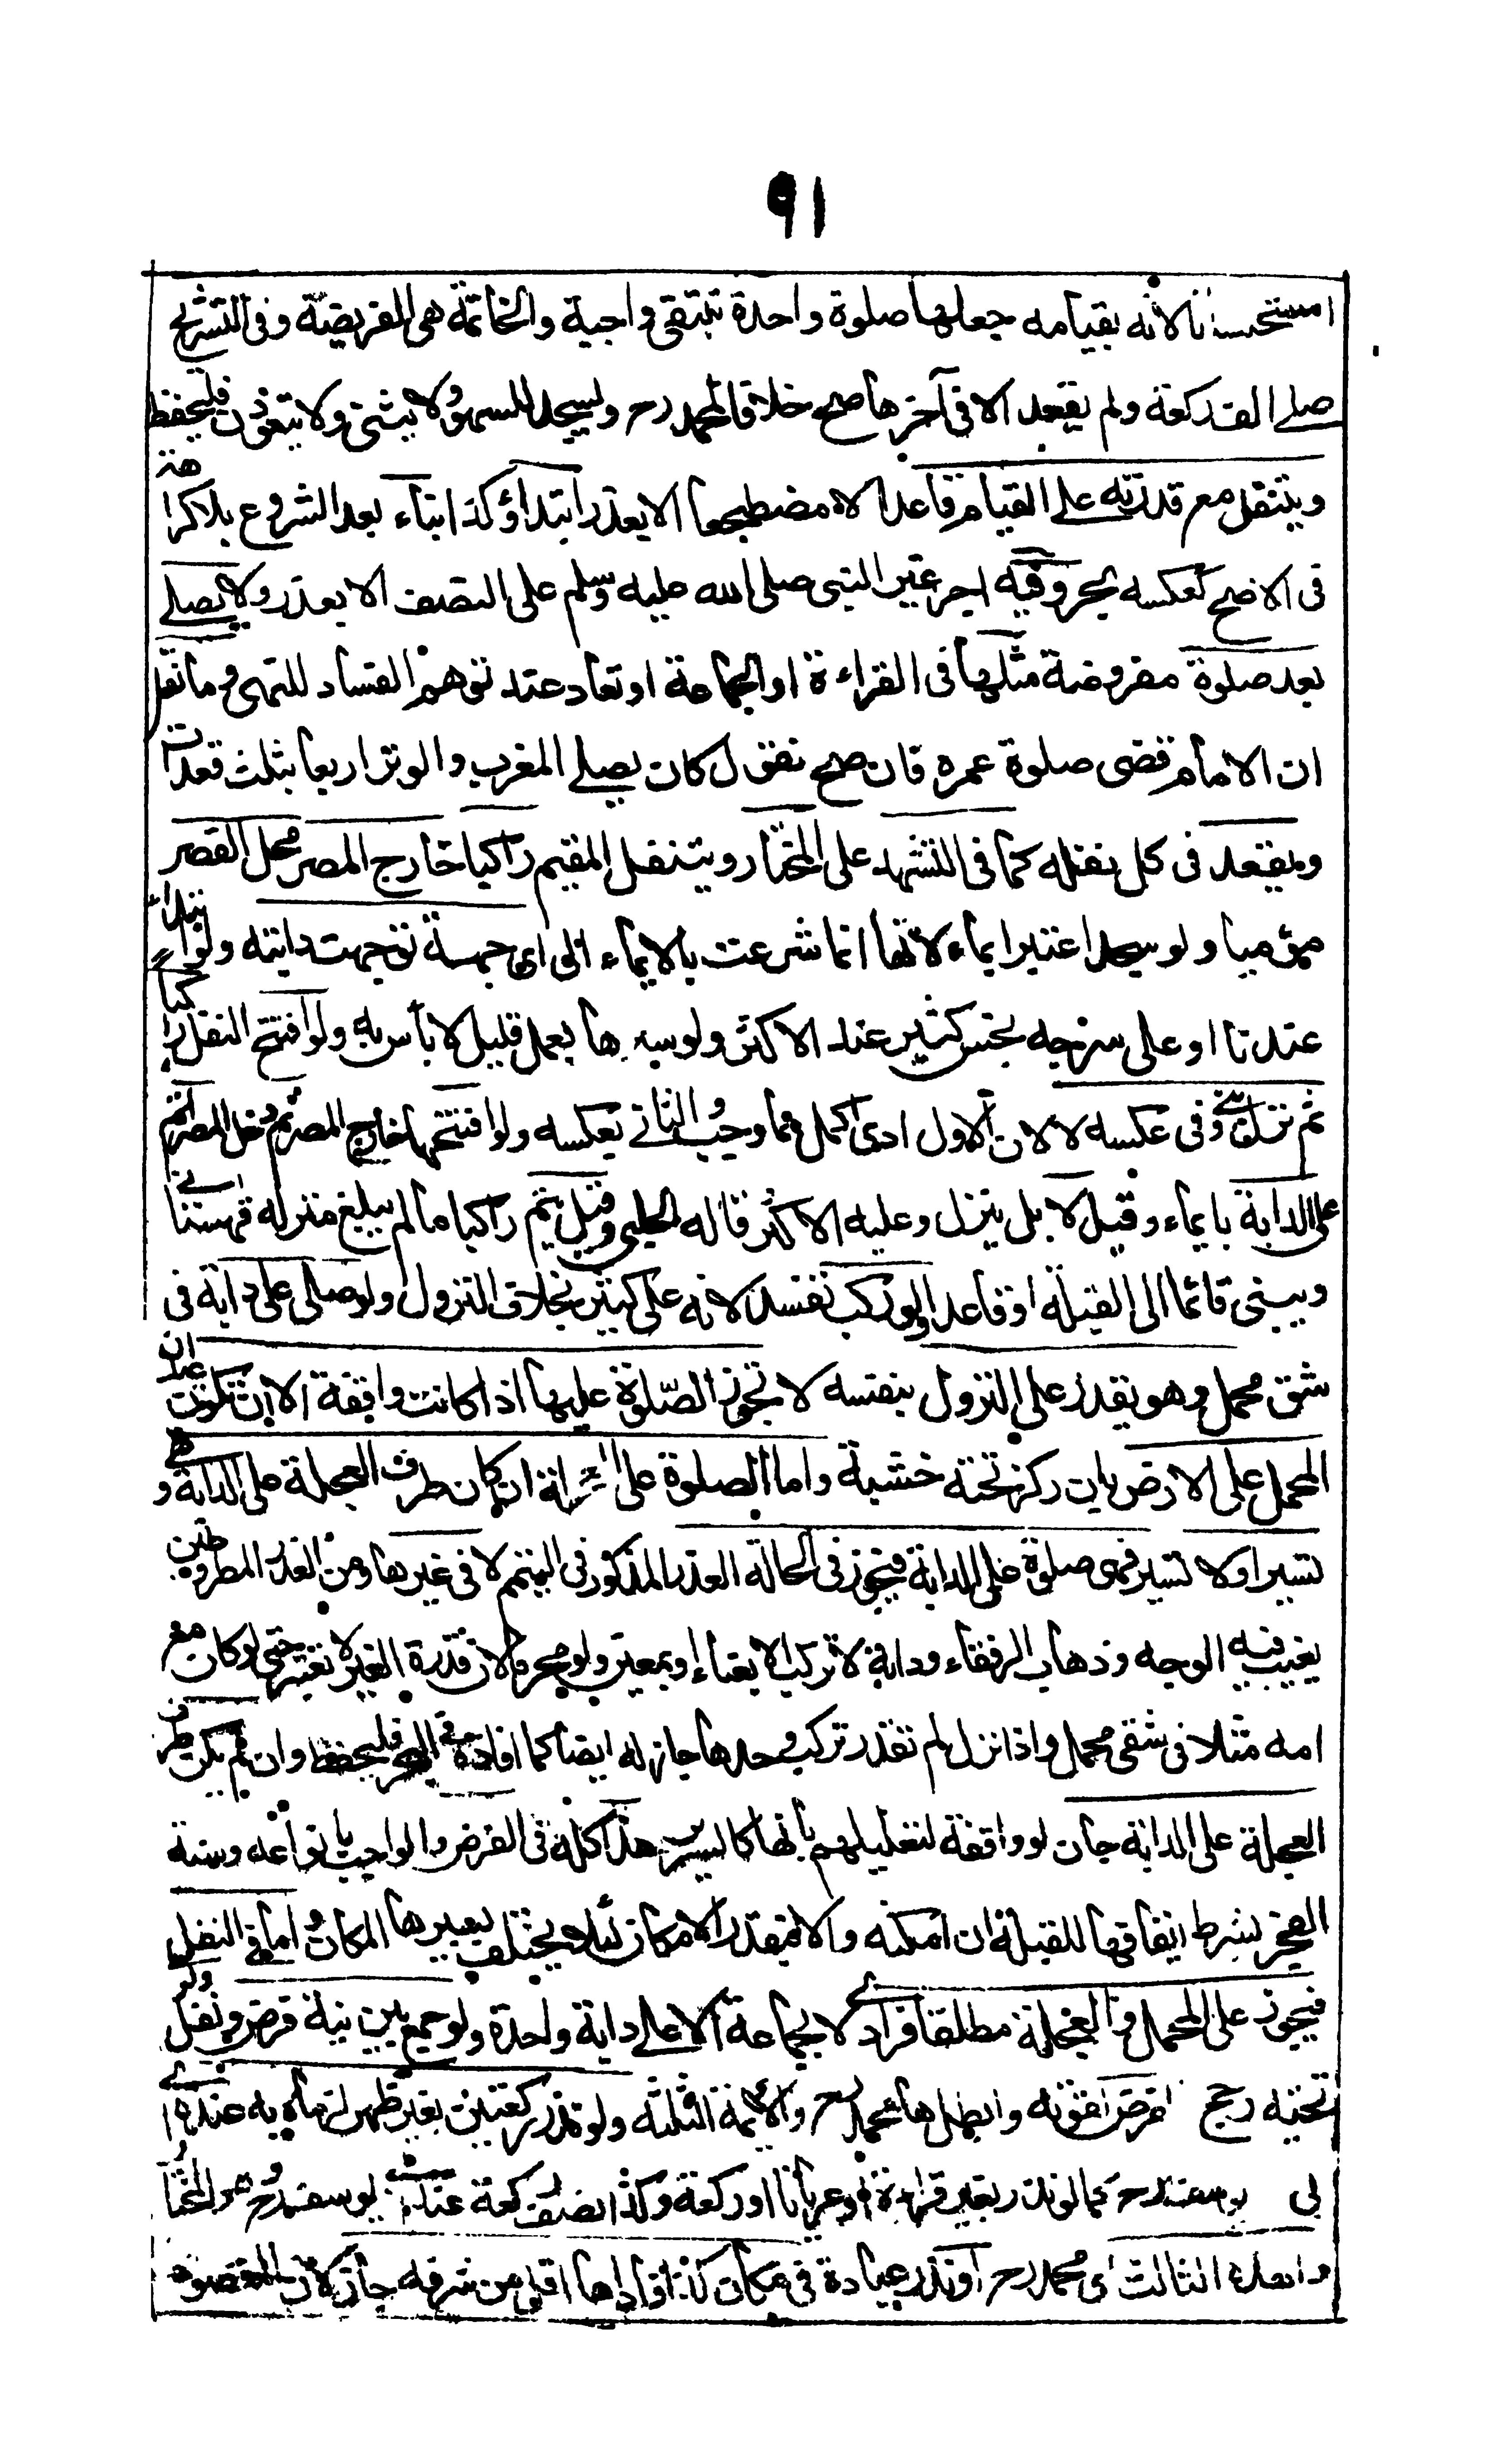 ٩١
استحسانا لانه بقيامه جعلها صلوة واحدة تبتقى واجبة والخاتمة هى الفريضة وفى التشريح
صلے الف ركعة ولم يقعد الا فى آخرها صح خلافا لمحمد رح ويسجد للسهو ولا يثنى ولا يتعوذ فليحفظ
ويتنفل مع قدرته على القيام قاعدا لا مضطجعا الا بعذر ابتداؤ كذا بناء بعد الشروع بلا كراهة
فى الاصح كعكسه بحر وفيه اجر غير النبى صلى الله عليه وسلم على النصف الا بعذر ولا يصلے
بعد صلوة مفروضة مثلها فى القراءة او الجماعة او تعاد عند توهم الفساد للنهى وما نقل
ان الامام قضى صلوة عمره فان صح نقول كان يصلے المغرب والوتر اربعا بثلث قعدات
ويقعد فى كل نفله كما فى التشهد على المختار ويتنفل المقيم راكبا خارج المصر محل القصر
مؤميا ولو سجد اعتبر ايماء لانها انما شرعت بالايماء الى اى جهة توجهت دابته ولو ابتداء
عندنا او على سرجه نجس كثير عند الاكثر ولو سيرها بعمل قليل لا بأس به ولو افتتح النفل راكبا
ثم نزل بنے وفى عكسه لا لان الاول ادى اكمل مما وجب والثانے بعكسه ولو افتتحها خارج المصر ثم دخل المصر اتم
على الدابة بايماء وقيل لا بل ينزل وعليه الاكثر قاله الحلبى وقيل يتم راكبا ما لم يبلغ منزله قهستانے
ويبنى قائما الى القبلة او قاعدا ولو ركب تفسد لانه عمل كثير بخلاف النزول ولو صلى على دابة فى
شق محمل وهو يقدر على النزول بنفسه لا تجوز الصلوة عليها اذا كانت واقفة الا ان تكون عيدان
المحمل على الارض بان ركز تحته خشبة واما الصلوة على العجلة ان كان طرف العجلة على الدابة وهے
تسير او لا تسير فهى صلوة على الدابة فيجوز فى الحالة العذر المذكور فى التيمم لا فى غيرها ومن العذر المطر وطين
يغيب فيه الوجه وذهاب الرفقاء ودابة لا تركب الا بعناء او بمعين ولو محرما لان قدرة الغير لا تعتبر حتى لو كان مع
امه مثلا فى شقى محمل واذا نزل لم تقدر تركب وحدها جاز له ايضا كما افاده فى البحر فليحفظ وان لم يكن طرف
العجلة على الدابة جاز لو واقفة لتعليلهم بانها كالسرير هذا كله فى الفرض والواجب بانواعه وسنة
الفجر بشرط ايقافها للقبلة ان امكنه والا فبقدر الامكان لئلا يختلف بسيرها المكان واما فى النفل
فيجوز على المحمل والعجلة مطلقا فرادے لا بجماعة الا على دابة واحدة ولو جمع بين نية فرض ونفل ولو
تحية رجح الفرض لقوته وابطلها محمد رح والائمة الثلثة ولو نذر ركعتين بغير طهر لزماه به عندهے ا
بى يوسف رح كما لو نذر بغير قراءة او عريانا او ركعة وكذا نصف ركعة عند ابى يوسف رح هو المختار
واهدره الثالث اى محمد رح او نذر عبادة فى مكان كذا فاداها اقل من شرفه جاز لان المقصود